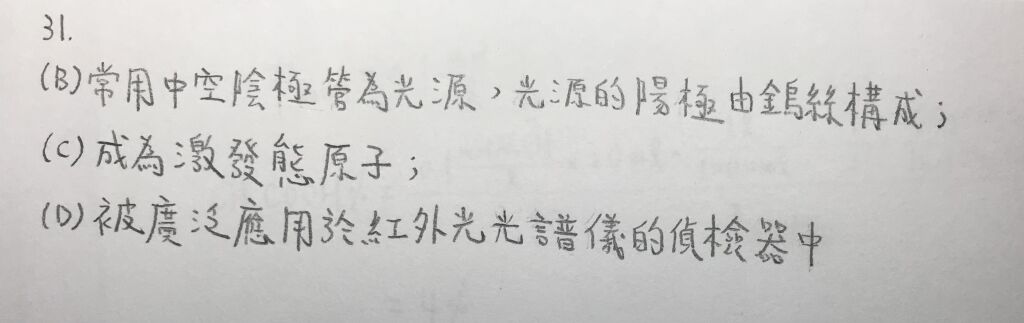 31.
(B)常用中空陰極管為光源，光源的陽極由鎢絲構成；
(C)成為激發態原子；
(D)被廣泛應用於紅外光光譜儀的偵檢器中